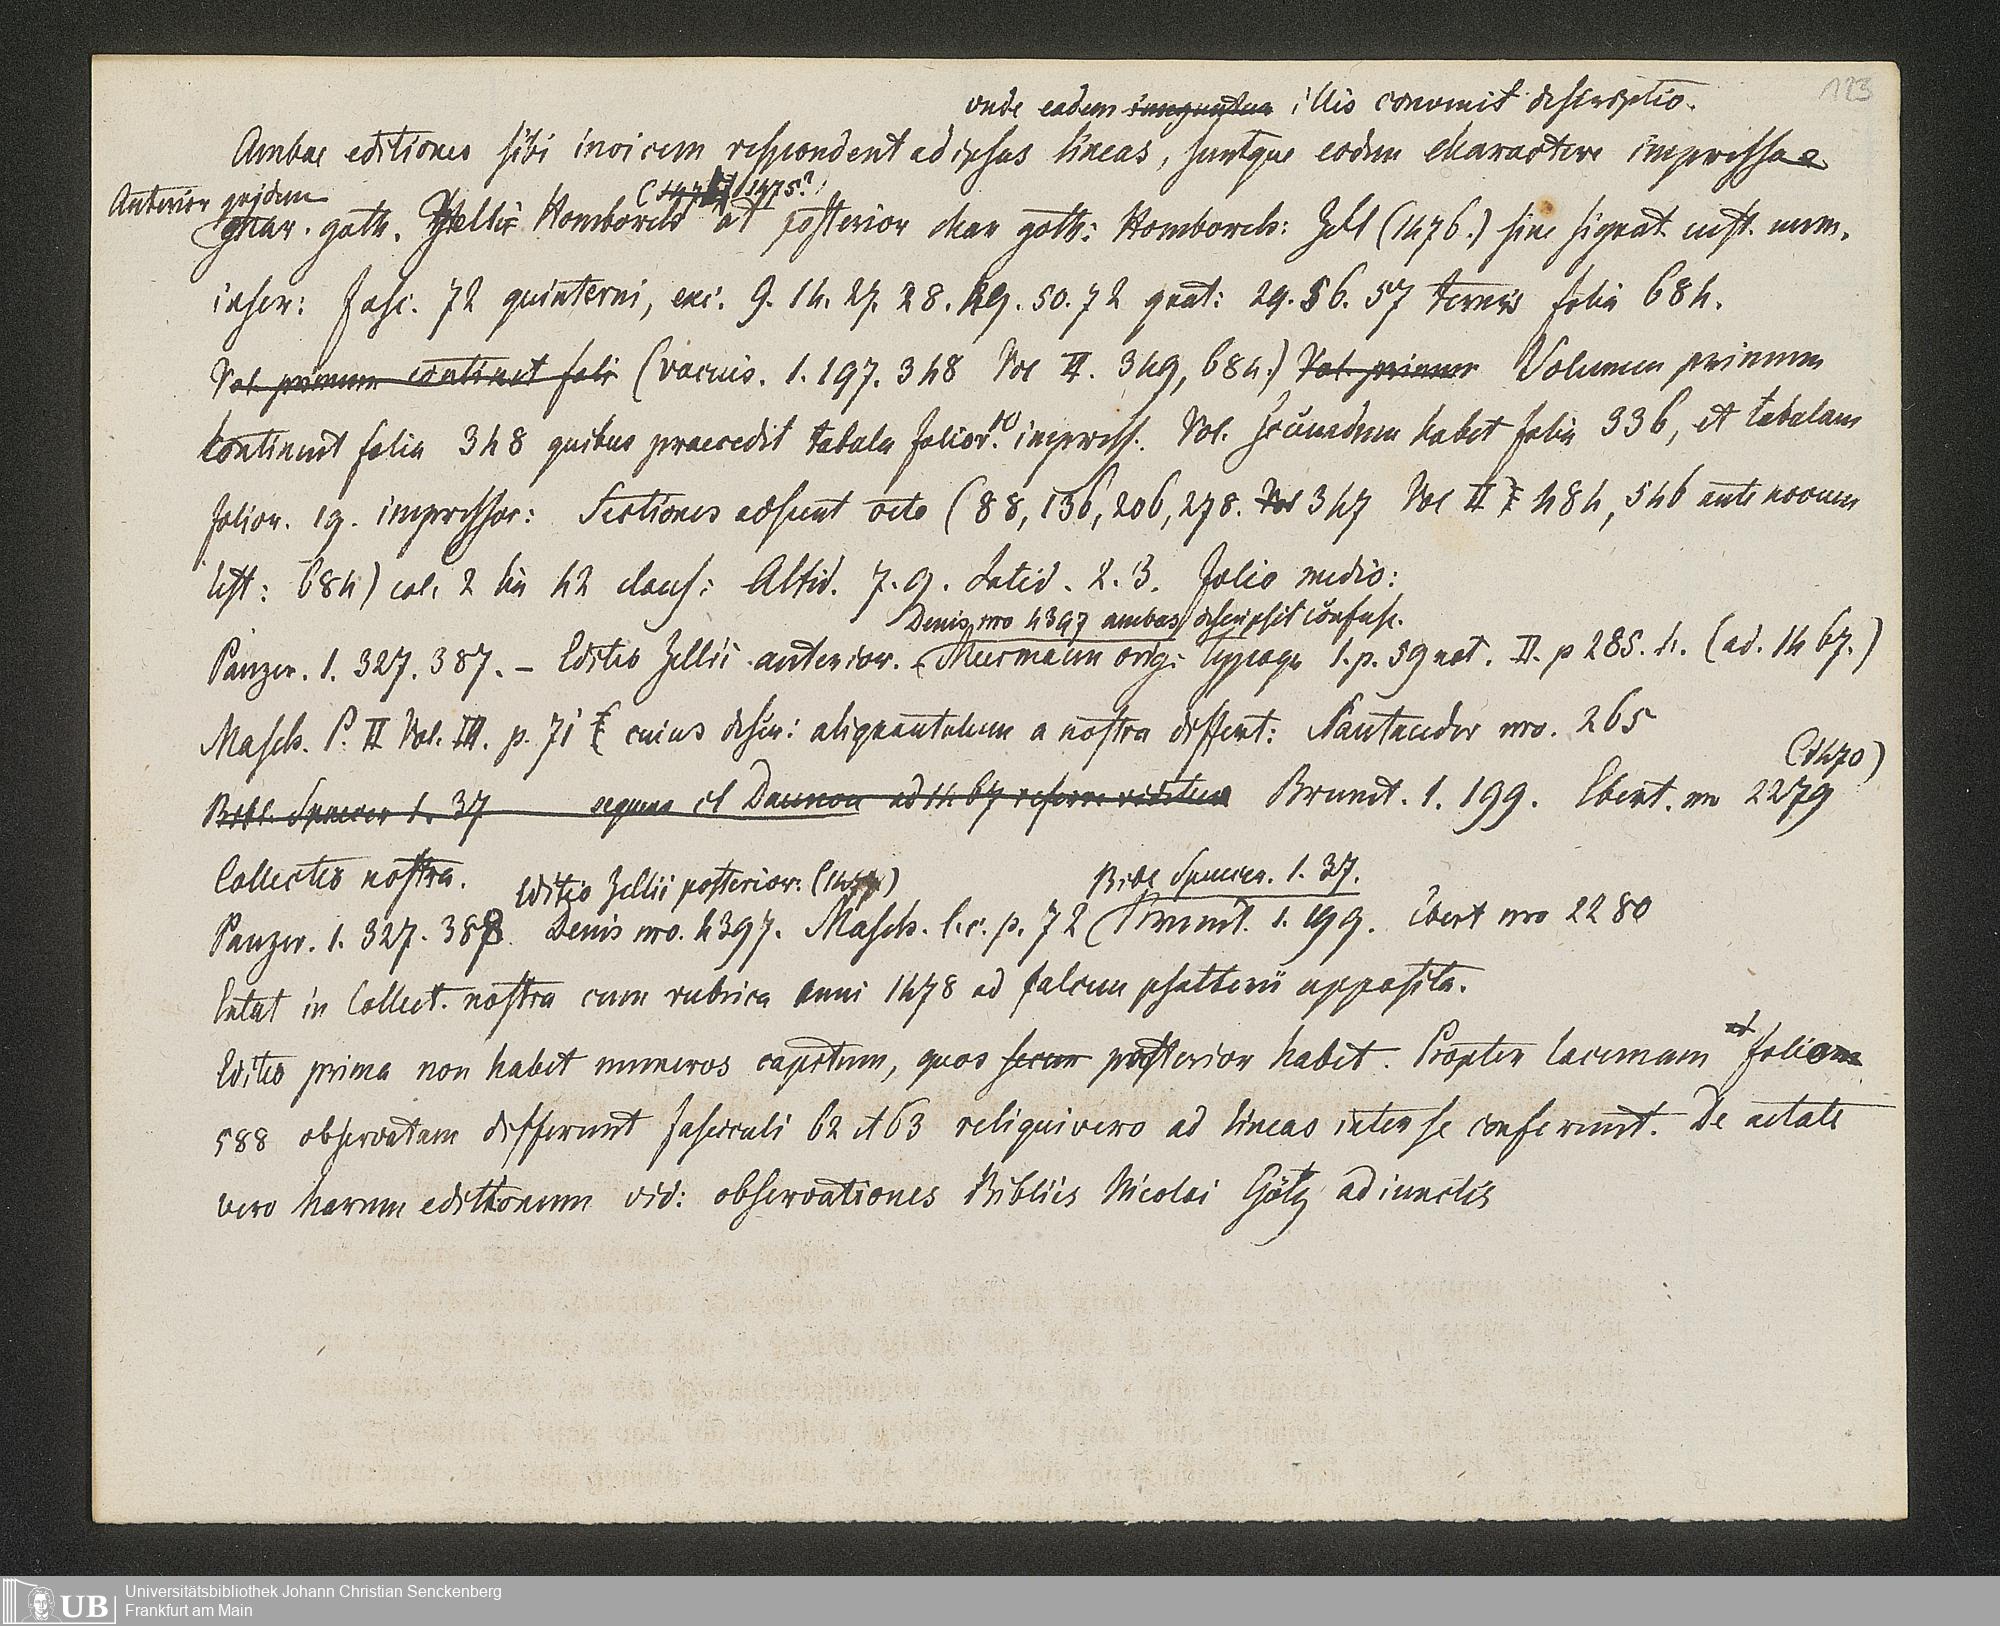 123
unde eadem illis convenit descriptio.
Ambae editiones sibi invicem respondent ad ipsas lineas, suntque eodem charactere impressae
Anterior quidem (1475?)
char. goth. Homborch at posterior char goth: Homborch: Zell (1476.) sine signat. cust. num.
inser: fasc. 72 quinterni, exc. 9. 14. 27. 28. 49. 50. 72 quat: 29. 56. 57 ternis folia 684.
Vol. primum continet foli (vacuis. 1. 197. 348 Vol II. 349, 684.) Vol. primum Volumen primum
continent folia 348 quibus praecedit tabula folior. 10 impress. Vol. secundum habet folia 336, et tabulam
folior. 19. impressor: Sectiones adsunt octo (88, 136, 206, 278. Vol 347 Vol II 484, 546 ante novum
test: 684) col. 2 lin 42 claus: Altid. 7. 9. Latid. 2. 3. folio medio:
Denis nro 4397 ambas descripsit confuse.
Panzer. 1. 327. 387. – Editio Zellii anterior. Meermann orig: typogr 1. p. 59 not. II. p 285. (ad. 1467.)
Masch. P. II Vol. III. p. 71 cuius descr: aliquantulum a nostra differt: Santander nro. 265
(1470)
Bibl. Spencer 1. 37 Daunou ad 1467 referre Brunet. 1. 199. Ebert. nro 2279
Collectio nostra.
Editio Zellii posterior: Bibl Spencer. 1. 37.
Panzer. 1. 327. 388. Denis nro. 4397. Masch. l. c. p. 72 Brunet. 1. 199. Ebert nro 2280
Extat in Collect. nostra cum rubrica anni 1478 ad calcem psalterii apposita.
Editio prima non habet numeros capitum, quos posterior habet. Propter lacunam ad folium
588 observatam differunt fasciculi 62 et 63 reliqui vero ad lineas inter se conferunt. De aetate
vero harum editionum vid: observationes Bibliis Nicolai Götz adiunctis
UB Universitätsbibliothek Johann Christian Senckenberg
Frankfurt am Main